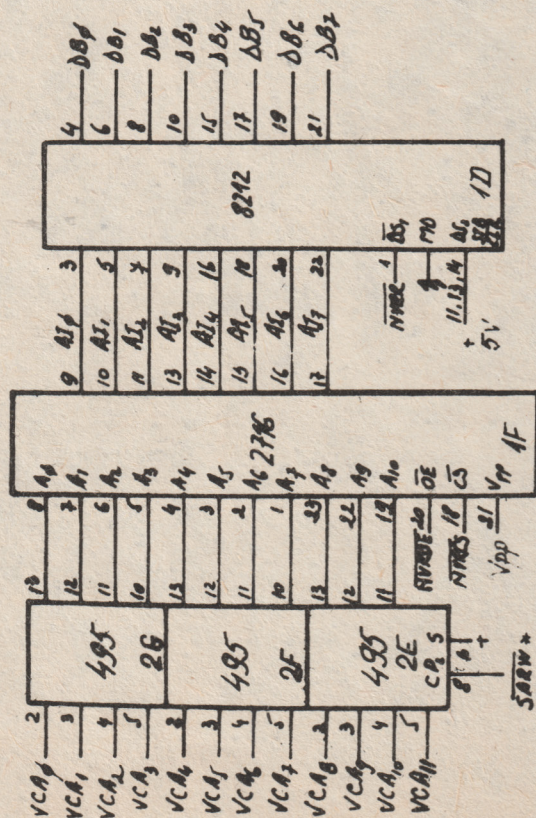 VCA∅ 2
VCA1 3
VCA2 4
VCA3 5
VCA4 2
VCA5 3
VCA6 4
VCA7 5
VCA8 2
VCA9 3
VCA10 4
VCA11 5
495
2G
495
2F
495
2E
CP2 S
8 6 1
+
SARW*
13 8 A∅
12 7 A1
11 6 A2
10 5 A3
13 4 A4
12 3 A5
11 2 A6
10 1 A7
13 23 A8
12 22 A9
11 19 A10
20 OE
18 CS
VPP 21 VPP
2716
1F
9 AI∅ 3
10 AI1 5
11 AI2 7
13 AI3 9
14 AI4 16
15 AI5 18
16 AI6 20
17 AI7 22
1 DS1
MD
11, 13, 14
+
5V
8212
1D
4 DB∅
6 DB1
8 DB2
10 DB3
15 DB4
17 DB5
19 DB6
21 DB7